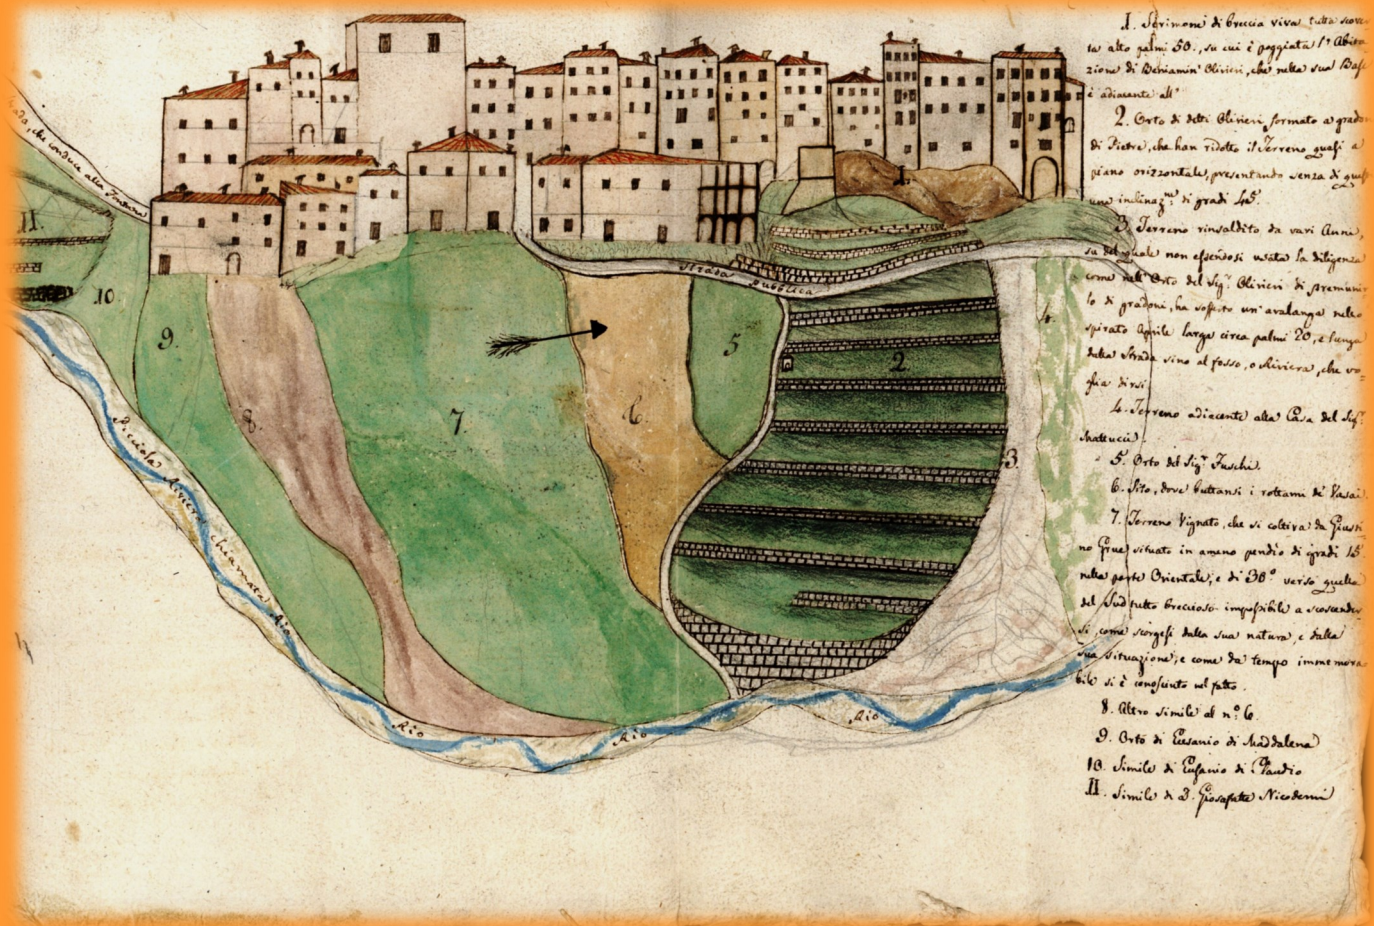 Strada, che conduce alla Fontana
1. Scrimone di breccia viva tutta scover
ta alto palmi 50., su cui è poggiata l'Abita
zione di Beniamin' Olivieri, che nella sua Base
è adiacente all'
2. Orto di detti Olivieri formato a gradoni
di Pietre, che han ridotto il Terreno quasi a
piano orizzontale, presentando senza di questi
una inclinaz.ne di gradi 45.
3. Terreno rinsaldito da vari Anni,
su del quale non essendosi usata la diligenza
come nell'Orto del Sig.r Olivieri di premunir
lo di gradoni, ha sofferto un'avalanga nello
spirato Aprile larga circa palmi 20, e lunga
dalla Strada sino al fosso, o Riviera, che vo=
glia dirsi
4. Terreno adiacente alla Casa del Sig.r
Matteucci.
5. Orto del Sig.r Fuschi.
6. Sito, dove buttansi i rottami de' Vasai.
7. Terreno Vignato, che si coltiva da Giusti
no Grue situato in ameno pendio di gradi 15
nella parte Orientale, e di 30° verso quella
del Sud tutto breccioso impossibile a scoscender
si, come scorgesi dalla sua natura, e dalla
sua situazione, e come da tempo immemora
bile si è conosciuto nel fatto.
8. Altro simile al n.° 6.
9. Orto di Eusanio di Maddalena
10. Simile di Eusanio di Claudio
11. Simile di D. Giosafatte Nicodemi
1.
Strada pubblica
11.
10.
9.
8.
7
6.
5
2.
3.
4.
Picciola Riviera chiamata Rio
Rio
Rio
Rio